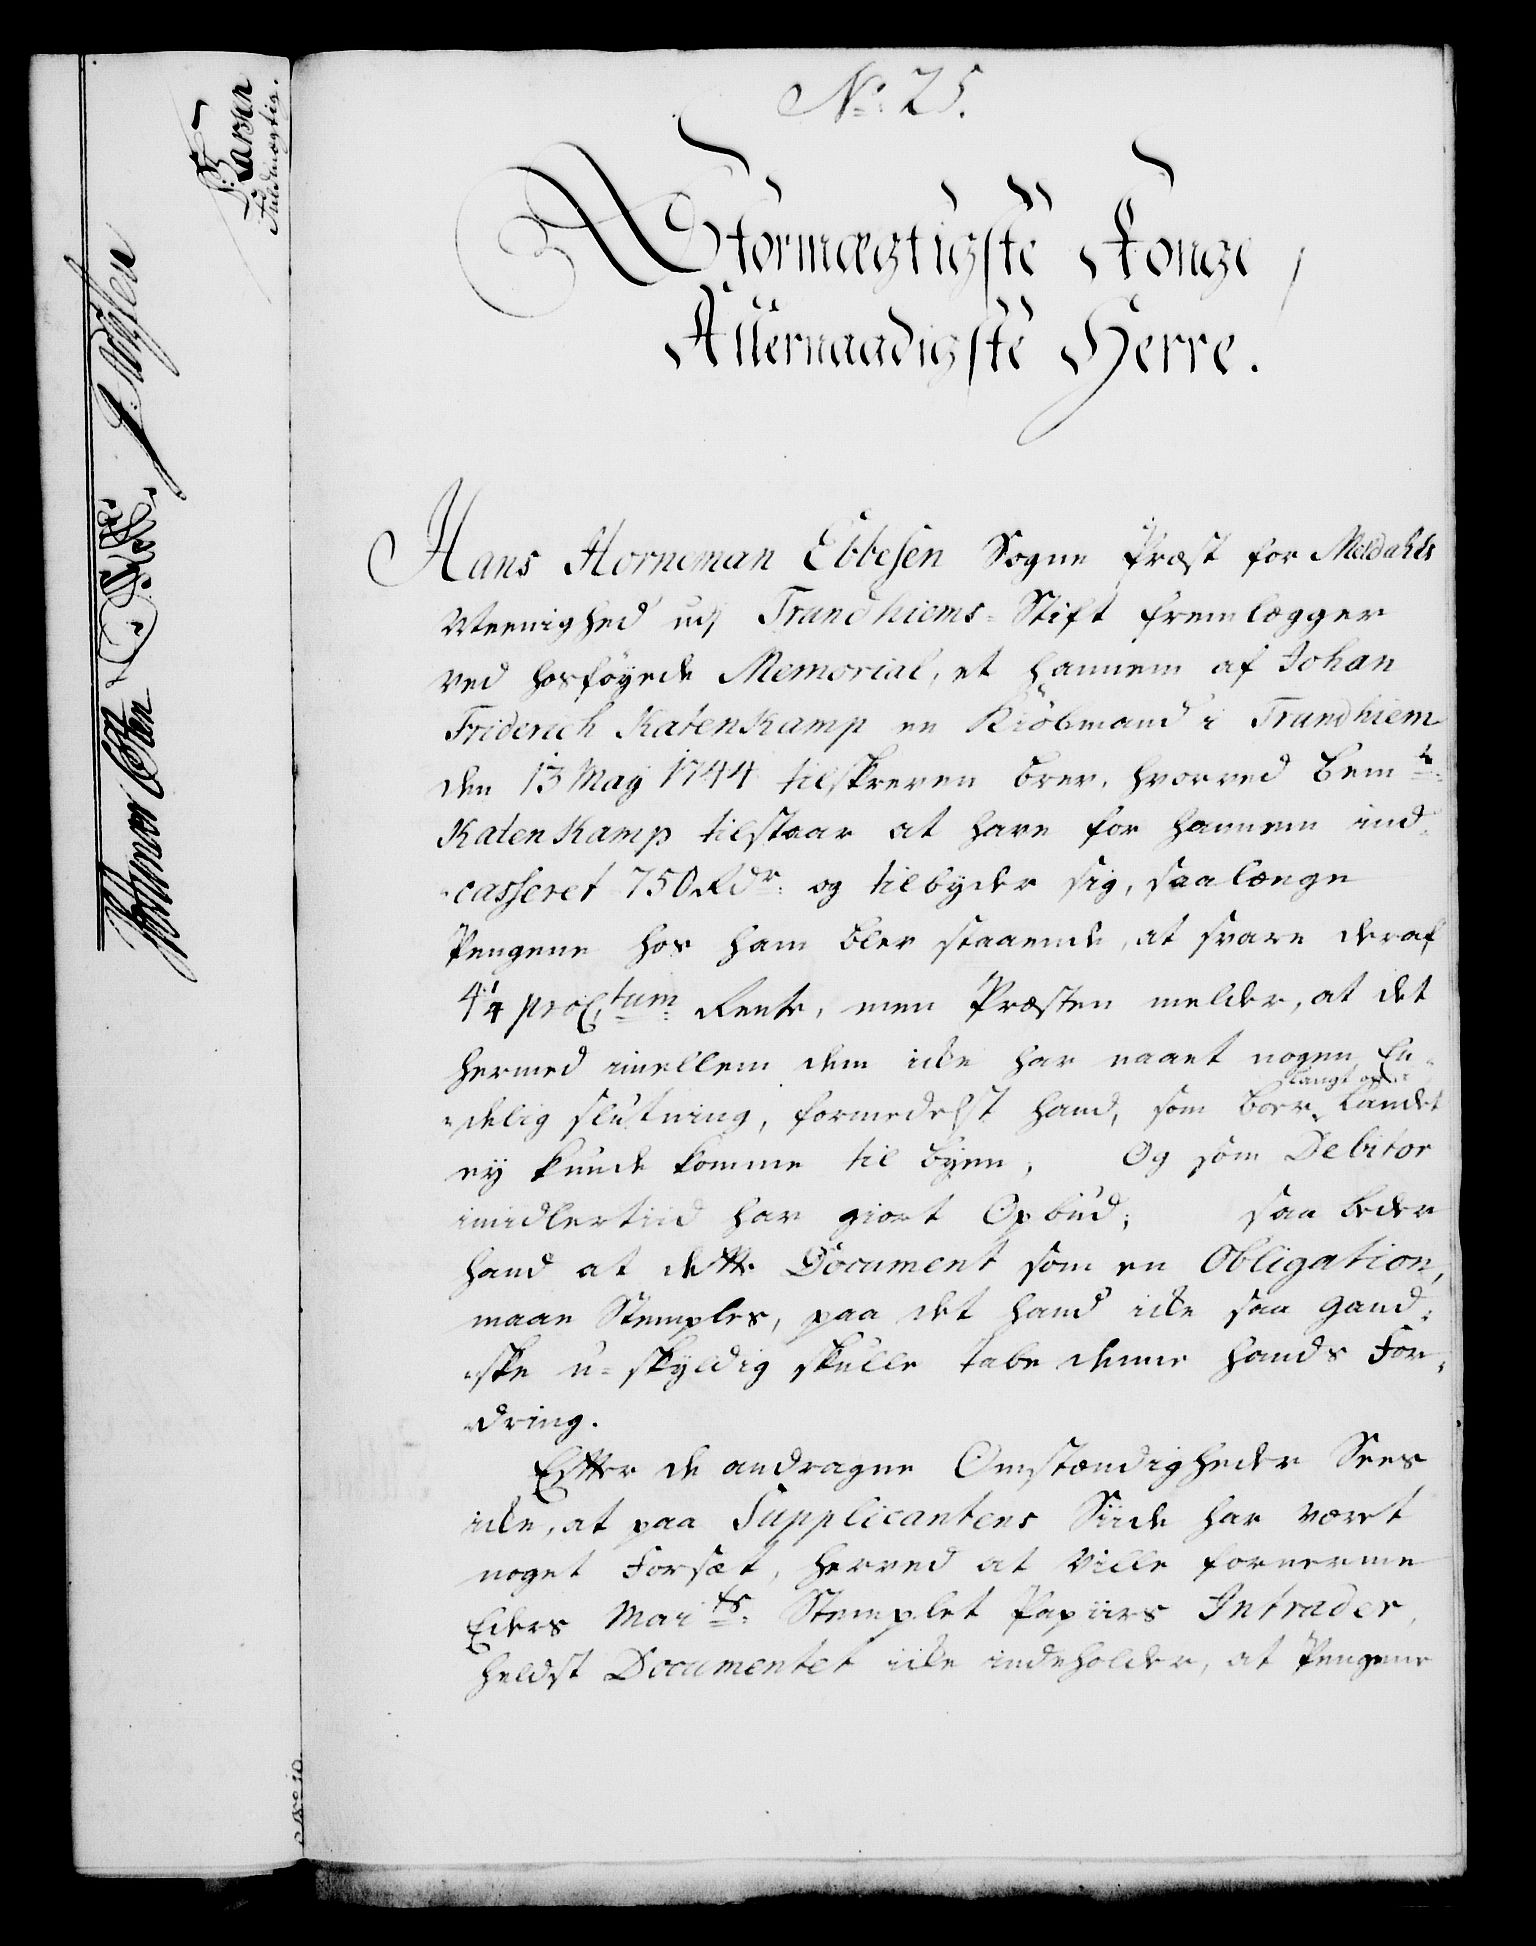 No. 25.
Stormægtigste Konge,
Allernaadigste Herre.
Hans Horneman Ebbesen Sogne Præst for Meldahls
Meenighed udj Trundhiems-Stift fremlægger
ved hosföyede Memorial, et hannem af Johan
Friderich Katenkamp en Kiöbmand i Trundhiem
den 13 May 1744 tilskreven brev, hvorved bem.te
Katenkamp tilstaar at have for hannem ind-
casseret 750 Rdr. og tilbyder sig, saalænge
Pengene hos ham blev staaende, at svare deraf
4 1/4 proCtum Rente, men Præsten melder, at det
hermed imellem dem icke har naaet nogen En-
delig slutning, formedelst hand, som boer langt op i Landet
ey kunde komme til byen, Og som Debitor
imidlertiid har giort Opbud; saa beder
hand at dette Document som en Obligation,
maae Stemples, paa det hand icke saa gand-
ske u-skyldig skulle tabe denne hands For-
dring.
Efter de andragne Omstændigheder Sees
icke, at paa Supplicantens Siide har været
noget Forsæt, herved at ville fornerme
Eders Mai.ts Stemplet Papiirs Intrader,
heldst Documentet icke indeholder, at Pengene
Larsen
Fuldmægtig.